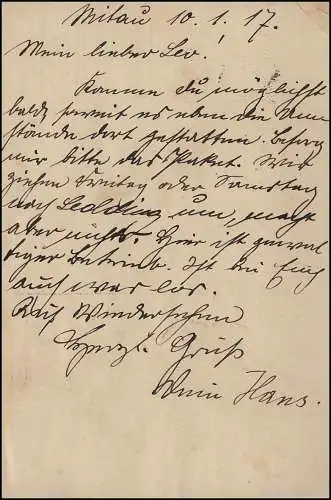 Mitau 10.1.17.
Mein lieber Leo!
Komme du möglichst
bald, soweit es eben die Um-
stände dort gestatten. Besorg
mir bitte das Paket. Wir
ziehen Freitag oder Samstag
nach um, macht
aber nichts. Hier ist gewal-
tiger Betrieb. Ist bei Euch
auch was los.
Auf Wiedersehen
Herzl. Gruß
Dein Hans.